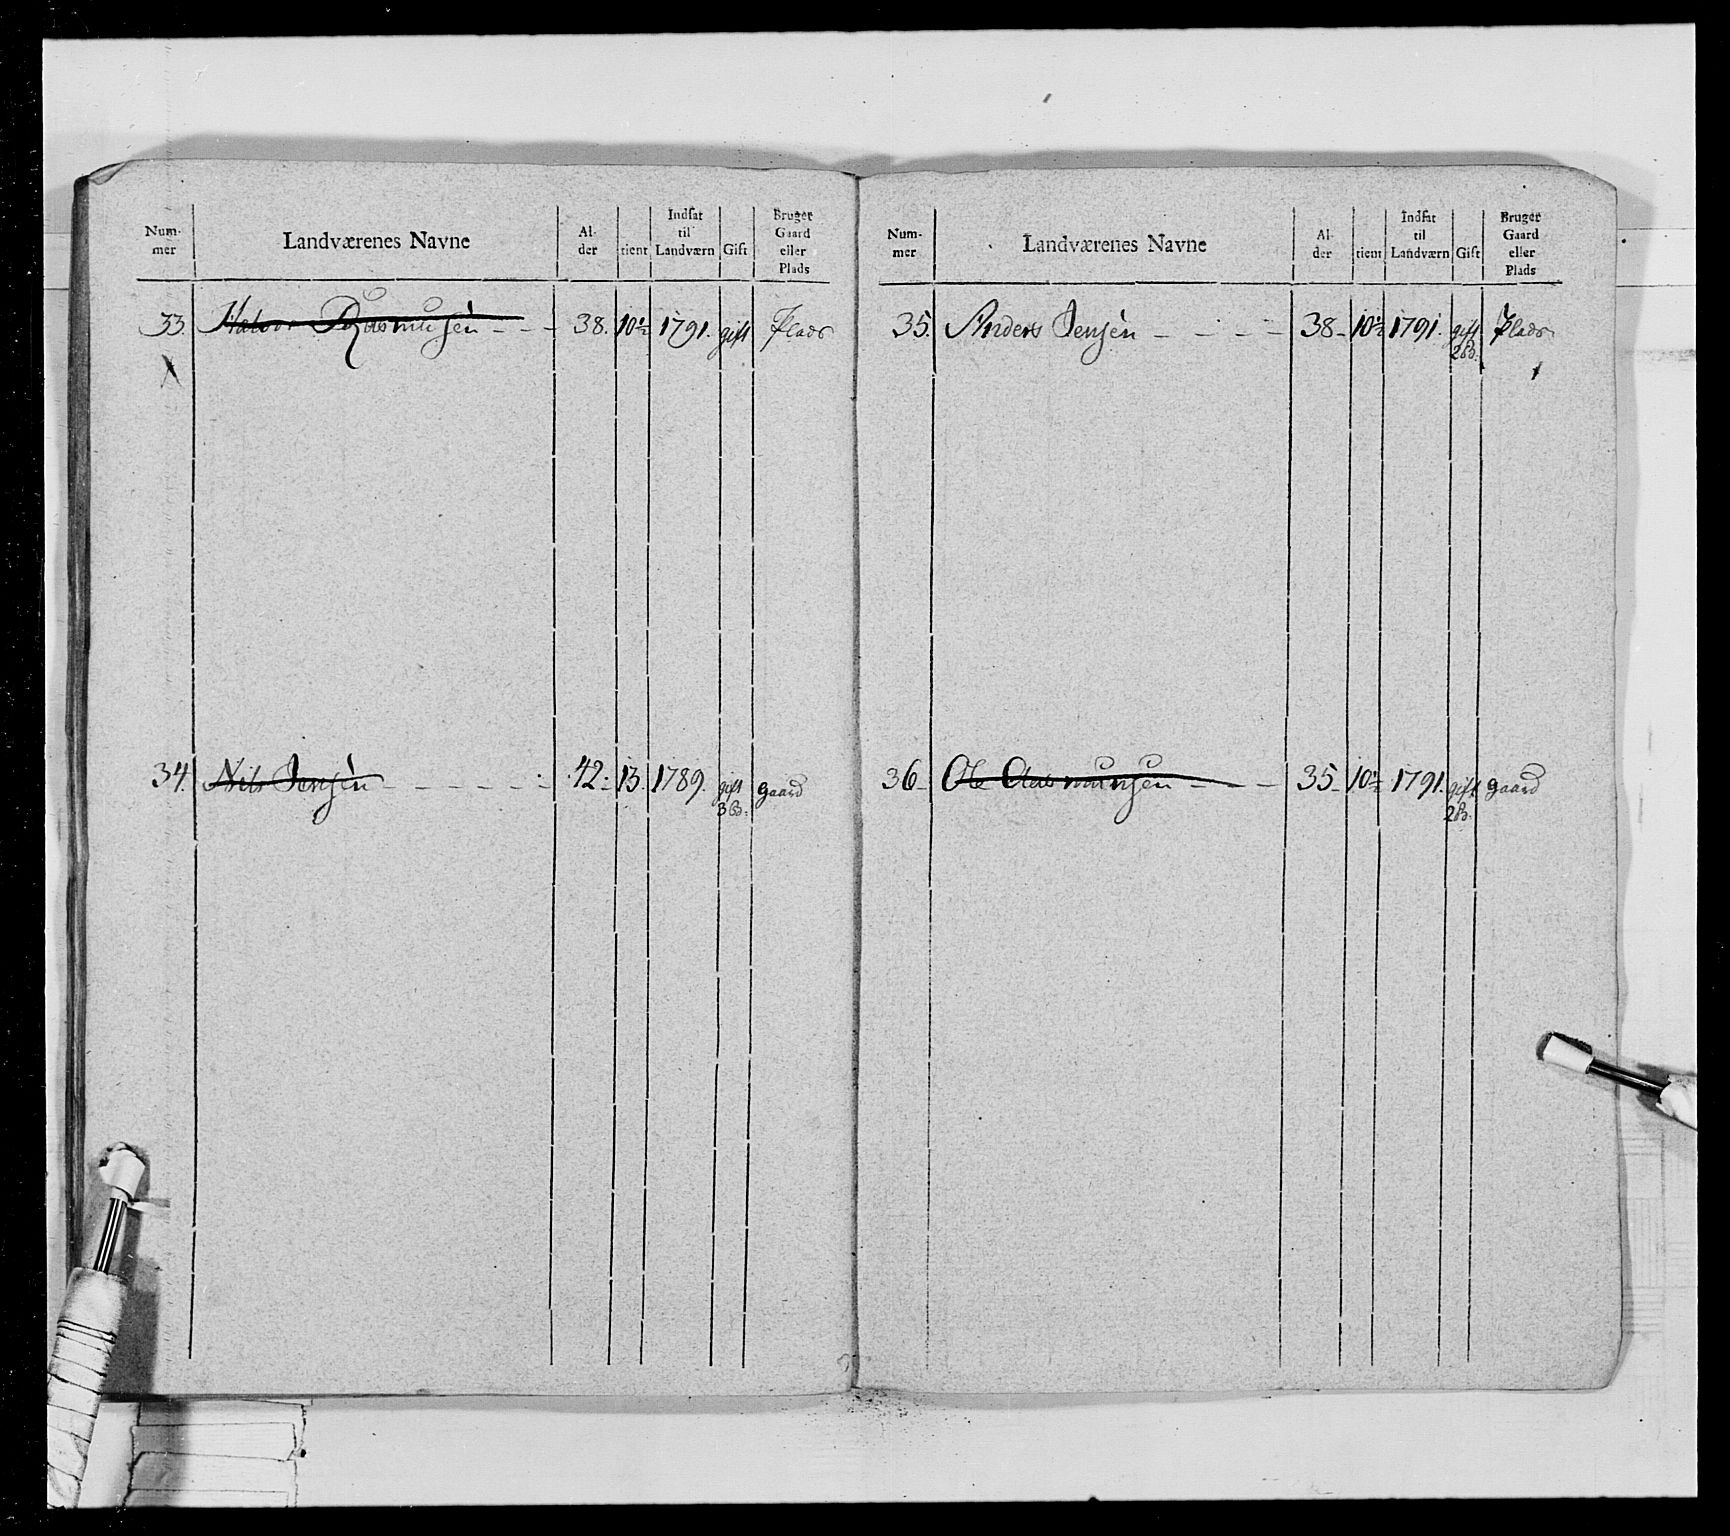 Num- mer | Landværenes Navne | Al- der | tient | Indsat til Landværn | Gift | Bruger Gaard eller Plads
33. Halvor Rasmusen - - - 38. 10½ 1791. gift Plads
34. Nils Jensen - - - - - - 42. 13. 1789. gift gaard
3 B.
Num- mer | Landværenes Navne | Al- der | tient | Indsat til Landværn | Gift | Bruger Gaard eller Plads
35. Anders Jensen - - - - 38 - 10½ 1791. gift Plads
2 B.
36 - Ole Aasmunsen - - - 35 - 10½ 1791. gift gaard
2 B.